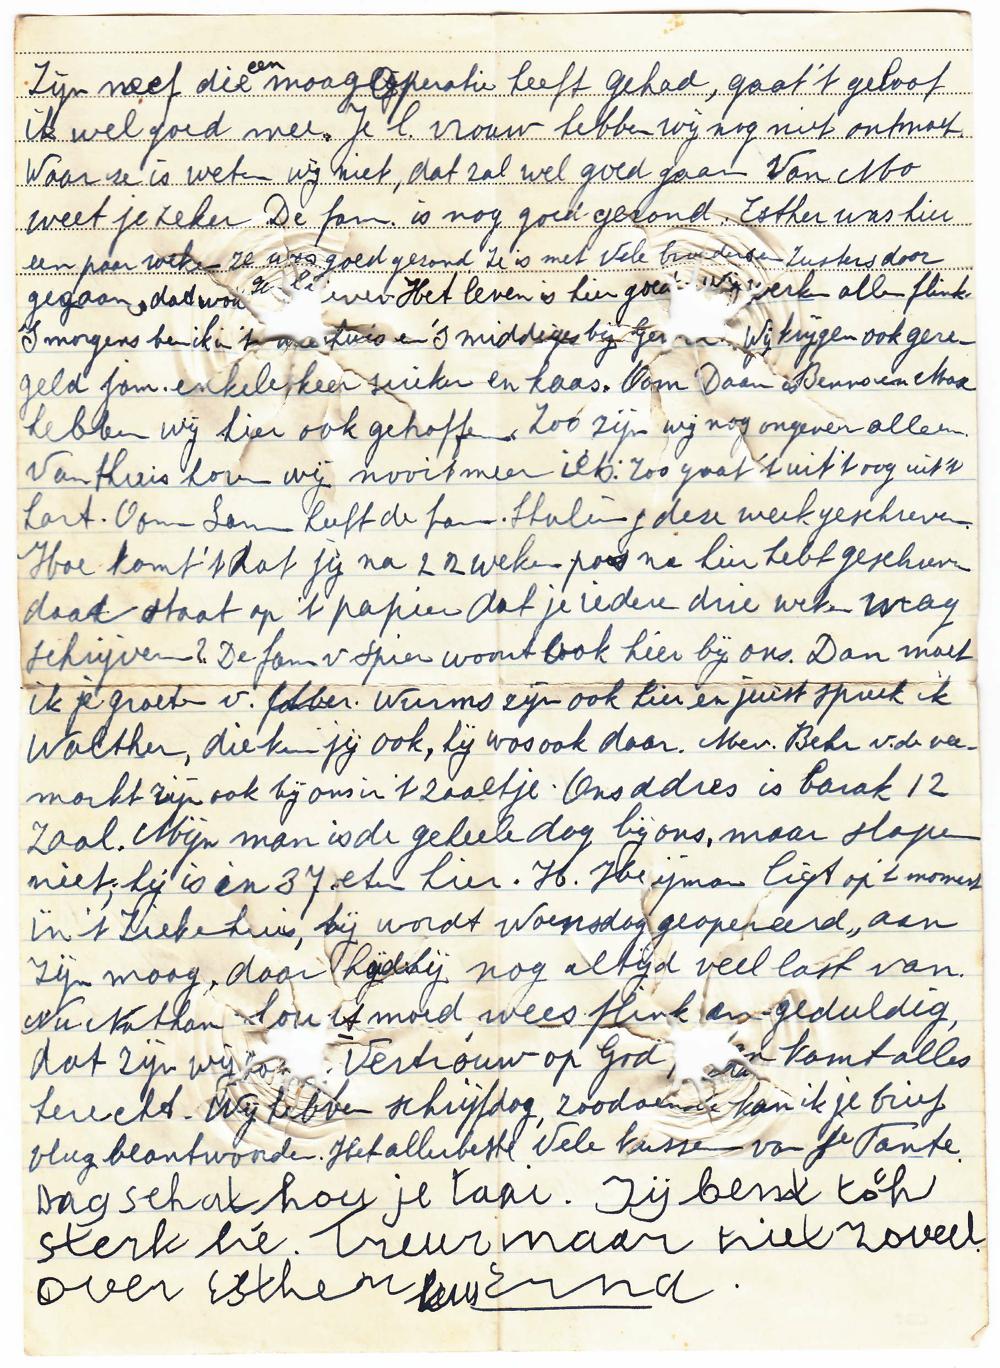 Zijn neef die een maag operatie heeft gehad, gaat 't geloof
ik wel goed mee. Je l. vrouw hebben wij nog niet ontmoet.
Waar ze is weten wij niet, dat zal wel goed gaan Van Mo
weet je zeker De fam. is nog goed gezond. Esther was hier
een paar weken ze was goed gezond Ze is met vele broeders en zusters door
gegaan, dat wou ze liever Het leven is hier goed Wij werken allen flink.
S morgens ben ik in 't en 'S middags bij Wij krijgen ook gere
geld fam. enkele keer suiker en kaas. Oom Daan Benno en Max
hebben wij hier ook getroffen. Zoo zijn wij nog ongeveer allen.
Van thuis horen wij nooit meer iets. Zoo gaat 't uit 't oog uit 't
hart. Oom Sam heeft de fam. deze week geschreven.
Hoe komt 't dat jij na 2 2 weken pas na hier hebt geschreven
daat staat op 't papier dat je iedere drie weken mag
schrijven? De fam v Spier woont ook hier bij ons. Dan moet
ik je groeten v. Wurms zijn ook hier en juist spreek ik
Walther, die ken jij ook, hij was ook daar. Mev. Behr v. de vee-
markt zijn ook bij ons in 't zaaltje. Ons addres is barak 12
Zaal. Mijn man is de geheele dag bij ons, maar slapen
niet, hij is in 37. eten hier. H. Heijman ligt op 't moment
in 't Ziekehuis, hij wordt Woensdag geopereerd, aan
zijn maag, daar hij nog altijd veel last van.
Nu Nathan hou moed wees flink en geduldig,
dat zijn wij Vertrouw op God, dan komt alles
terecht. Wij hebben schrijfdag, zoodoende kan ik je brief
vlug beantwoorden. Het allerbeste Vele kussen van je Tante.
Dag schat hou je taai. Jij bent toh
sterk hé. Treur maar niet zoveel
over Esther kus Erna.